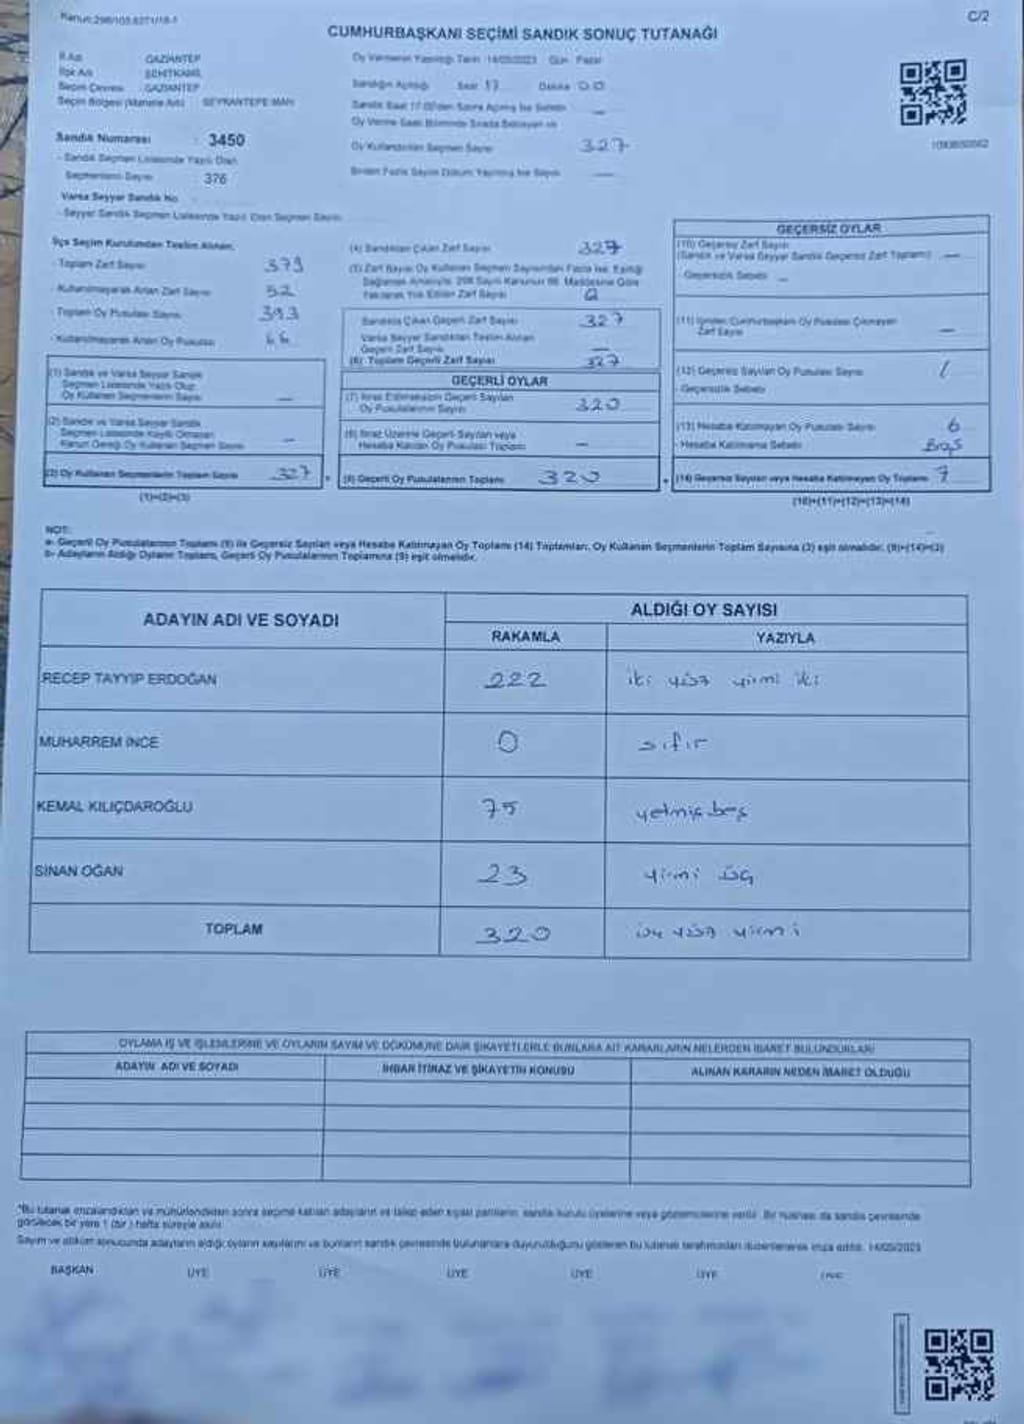 Kanun:298/103,6271/18-1
C/2
CUMHURBAŞKANI SEÇİMİ SANDIK SONUÇ TUTANAĞI
İl Adı GAZİANTEP
İlçe Adı ŞEHİTKAMİL
Seçim Çevresi GAZİANTEP
Seçim Bölgesi (Mahalle Adı) BEYKANTEPE MAH
Sandık Numarası : 3450
- Sandık Seçmen Listesinde Yazılı Olan
Seçmenlerin Sayısı 376
Varsa Seyyar Sandık No
- Seyyar Sandık Seçmen Listesinde Yazılı Olan Seçmen Sayısı
Oy Vermenin Yapıldığı Tarih : 14/05/2023 Gün : Pazar
Sandığın Açıldığı Saat 17 Dakika 00
Sandık Saat 17.00'den Sonra Açılmış İse Sebebi —
Oy Verme Saati Bitiminde Sırada Bekleyen ve
Oy Kullandırılan Seçmen Sayısı 327
Birden Fazla Sayım Döküm Yapılmış İse Sayısı —
İlçe Seçim Kurulundan Teslim Alınan;
- Toplam Zarf Sayısı 379
- Kullanılmayarak Artan Zarf Sayısı 52
- Toplam Oy Pusulası Sayısı 393
- Kullanılmayarak Artan Oy Pusulası 66
(1) Sandık ve Varsa Seyyar Sandık
Seçmen Listesinde Yazılı Olup
Oy Kullanan Seçmenlerin Sayısı —
(2) Sandık ve Varsa Seyyar Sandık
Seçmen Listesinde Kayıtlı Olmayan
Kanun Gereği Oy Kullanan Seçmen Sayısı —
(3) Oy Kullanan Seçmenlerin Toplam Sayısı 327
(1)+(2)=(3)
(4) Sandıktan Çıkan Zarf Sayısı 327
(5) Zarf Sayısı Oy Kullanan Seçmen Sayısından Fazla İse, Eşitliği
Sağlamak Amacıyla; 298 Sayılı Kanunun 98. Maddesine Göre
Yakılarak Yok Edilen Zarf Sayısı 0
Sandıkta Çıkan Geçerli Zarf Sayısı 327
Varsa Seyyar Sandıktan Teslim Alınan
Geçerli Zarf Sayısı —
(6) Toplam Geçerli Zarf Sayısı 327
GEÇERLİ OYLAR
(7) İtiraz Edilmeksizin Geçerli Sayılan
Oy Pusulalarının Sayısı 320
(8) İtiraz Üzerine Geçerli Sayılan veya
Hesaba Katılan Oy Pusulası Toplamı —
(9) Geçerli Oy Pusulalarının Toplamı 320
GEÇERSİZ OYLAR
(10) Geçersiz Zarf Sayısı
(Sandık ve Varsa Seyyar Sandık Geçersiz Zarf Toplamı) —
- Geçersizlik Sebebi —
(11) İçinden Cumhurbaşkanı Oy Pusulası Çıkmayan
Zarf Sayısı —
(12) Geçersiz Sayılan Oy Pusulası Sayısı 1
- Geçersizlik Sebebi
(13) Hesaba Katılmayan Oy Pusulası Sayısı 6
- Hesaba Katılmama Sebebi Boş
(14) Geçersiz Sayılan veya Hesaba Katılmayan Oy Toplamı 7
(10)+(11)+(12)+(13)=(14)
NOT:
a- Geçerli Oy Pusulalarının Toplamı (9) ile Geçersiz Sayılan veya Hesaba Katılmayan Oy Toplamı (14) Toplamları, Oy Kullanan Seçmenlerin Toplam Sayısına (3) eşit olmalıdır. (9)+(14)=(3)
b- Adayların Aldığı Oyların Toplamı, Geçerli Oy Pusulalarının Toplamına (9) eşit olmalıdır.
ADAYIN ADI VE SOYADI
ALDIĞI OY SAYISI
RAKAMLA YAZIYLA
RECEP TAYYİP ERDOĞAN 222 iki yüz yirmi iki
MUHARREM İNCE 0 sıfır
KEMAL KILIÇDAROĞLU 75 yetmiş beş
SİNAN OĞAN 23 yirmi üç
TOPLAM 320 üç yüz yirmi
OYLAMA İŞ VE İŞLEMLERİNE VE OYLARIN SAYIM VE DÖKÜMÜNE DAİR ŞİKAYETLERLE BUNLARA AİT KARARLARIN NELERDEN İBARET BULUNDUKLARI
ADAYIN ADI VE SOYADI İHBAR İTİRAZ VE ŞİKAYETİN KONUSU ALINAN KARARIN NEDEN İBARET OLDUĞU
*Bu tutanak imzalandıktan ve mühürlendikten sonra seçime katılan adayların ve talep eden siyasi partilerin sandık kurulu üyelerine veya gözlemcilerine verilir. Bir nüshası da sandık çevresinde
görülecek bir yere 1 (bir) hafta süreyle asılır.
Sayım ve döküm sonucunda adayların aldığı oyların sayılarını ve bunların sandık çevresinde bulunanlara duyurulduğunu gösteren bu tutanak tarafımızdan düzenlenerek imza edildi. 14/05/2023
BAŞKAN ÜYE ÜYE ÜYE ÜYE ÜYE ÜYE